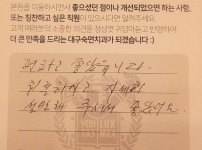 본원을 이용하시면서 좋으셨던 점이나 개선되었으면 하는 사항,
또는 칭찬하고 싶은 직원이 있으시다면 알려주세요.
고객 여러분의 소중한 의견을 정성껏 귀담아듣고 반영하여
더 큰 만족을 드리는 대구숙면치과가 되겠습니다 :)
편하고 좋았습니다.
자세히
설명해 주셔서 좋았어요.